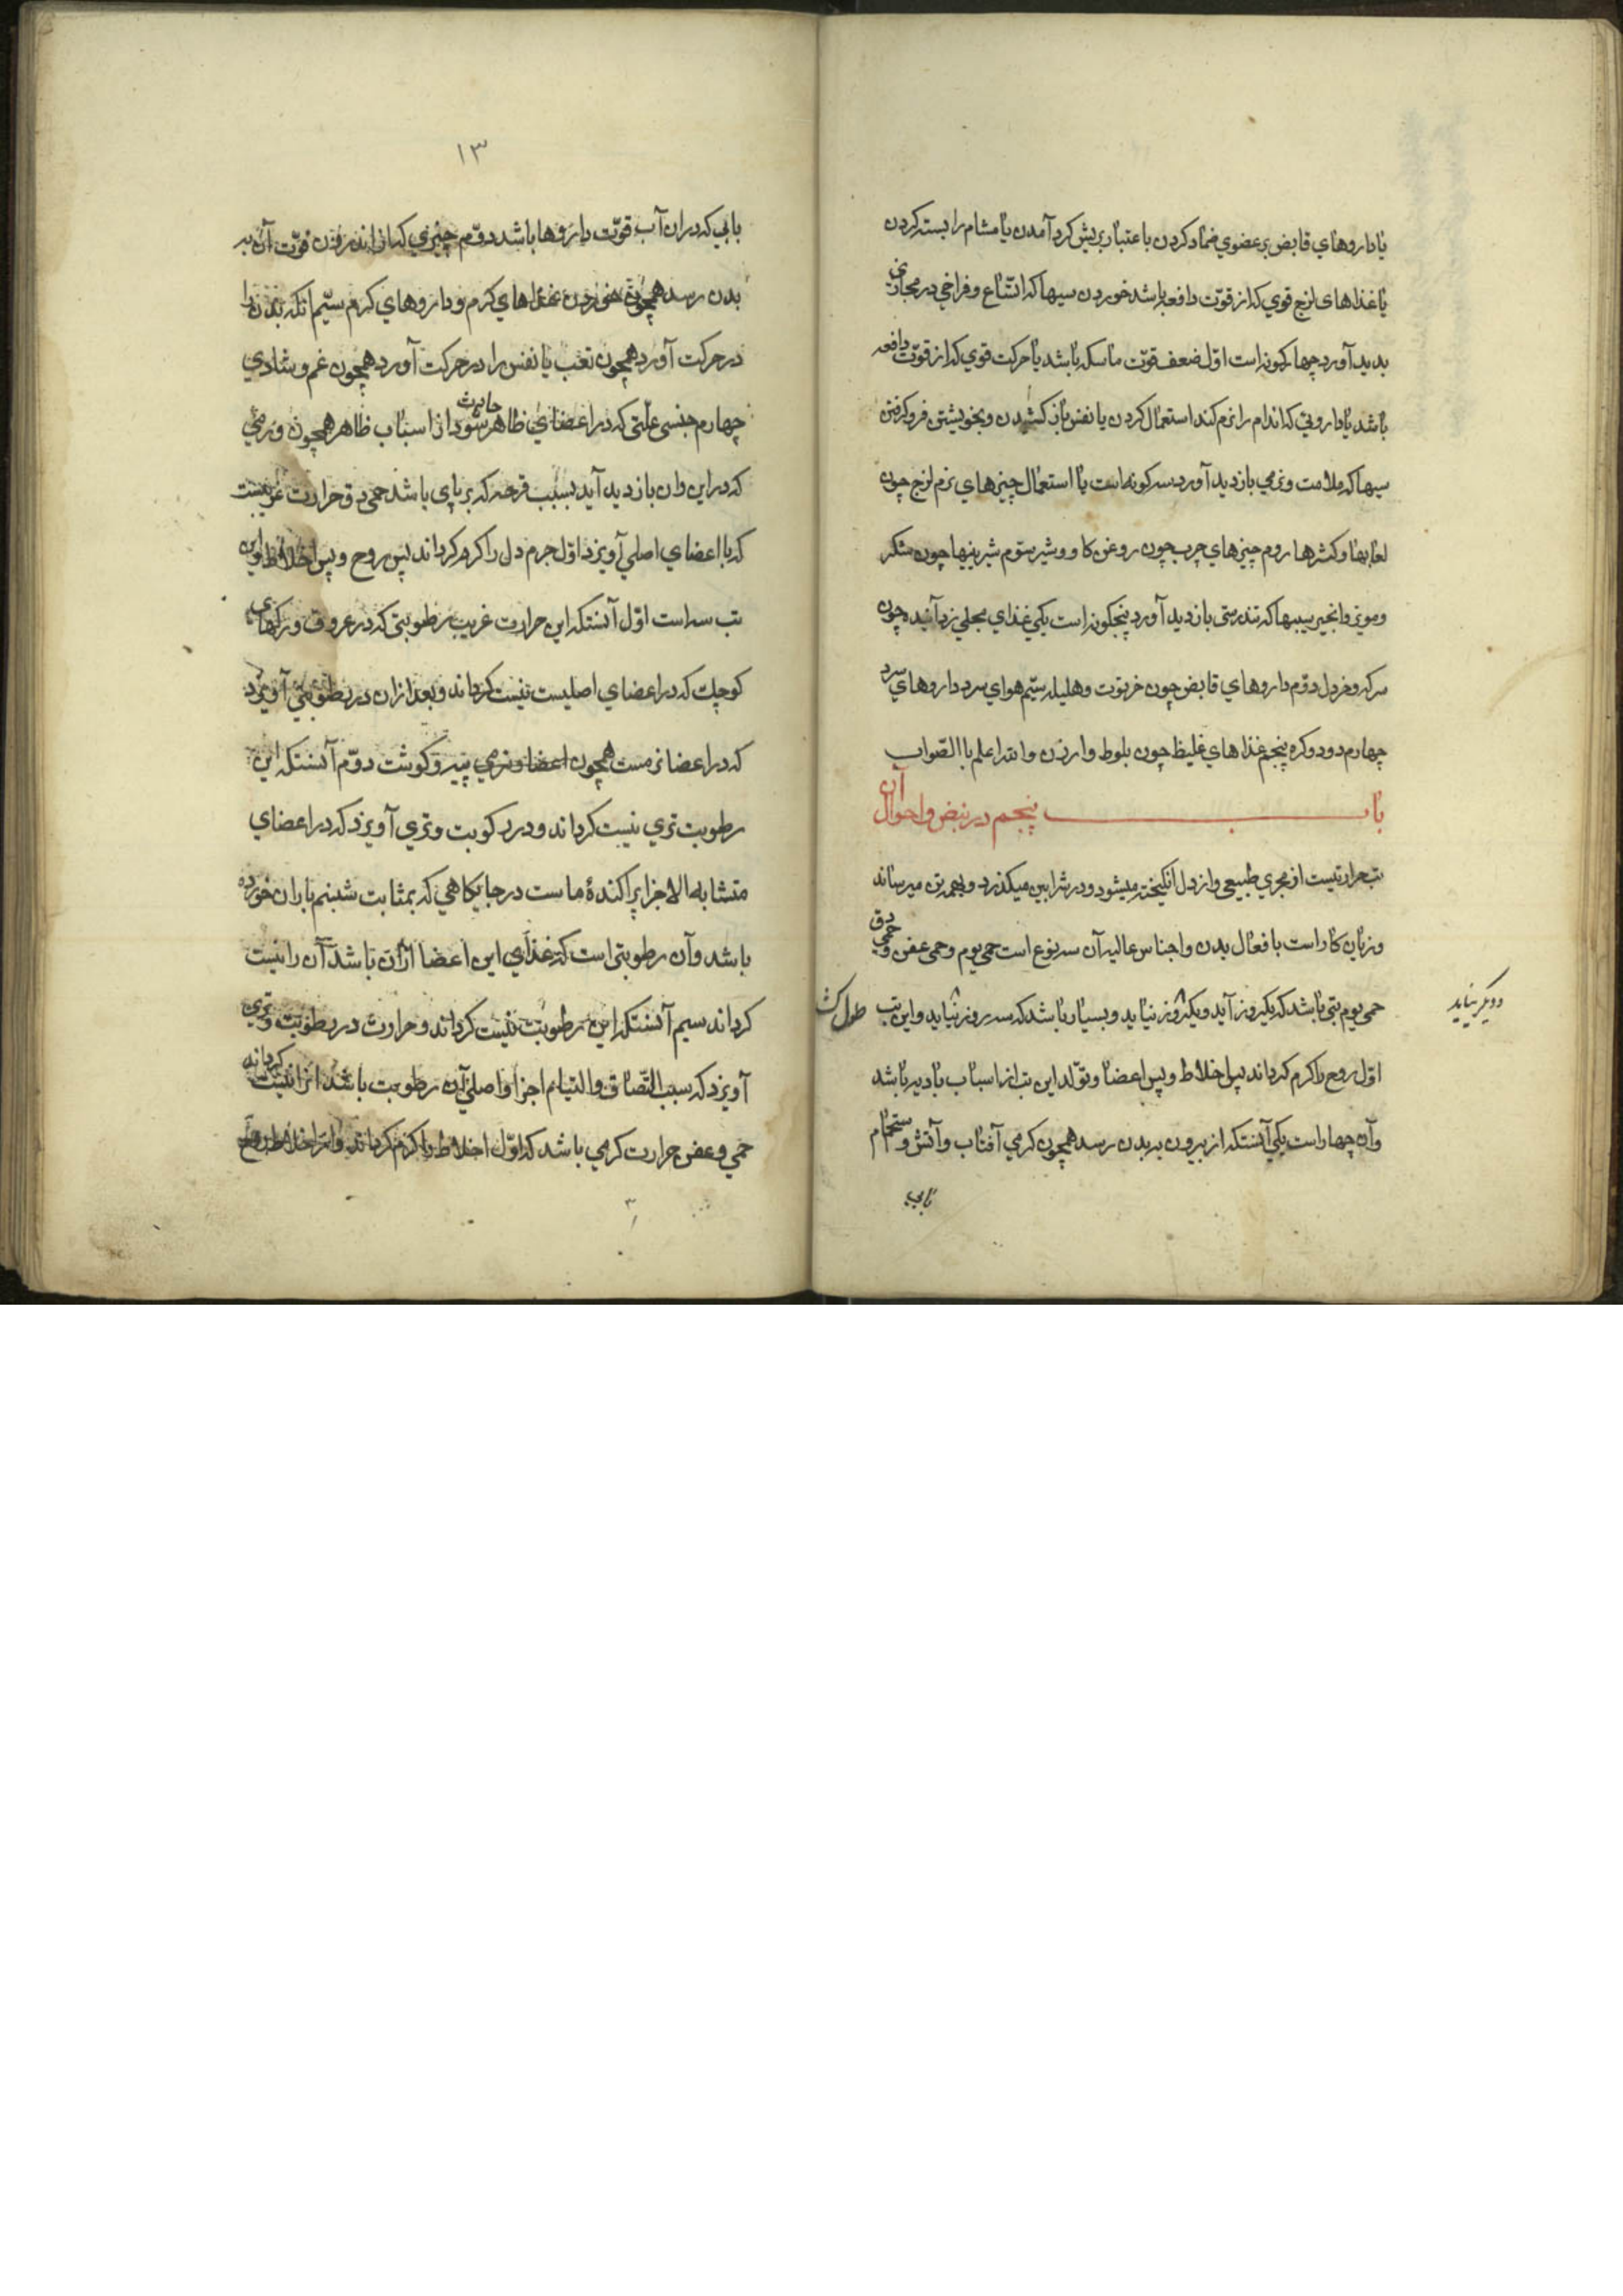 یا داروهای قابض بر عضوی ضماد کردن یا عتبار بریش کرد آمدن یا مشام را بسته کردن
یا غذاهای لزج قوی که از قوّت دافعه باشد خوردن سببها که اتّساع و فراخی در مجاری
بدید آورد چهار کونه است اوّل ضعف قوّت ماسکه باشد یا حرکت قوی که از قوّت دافعه
باشد یا داروئی که اندام را نرم کند استعمال کردن یا نفس باز کشیدن و بخویشتن فرو کرفتن
سببها که ملاست و نرمی بازدید آورد سه کونه است یا استعمال چیزهای نرم لزج چون
لعابها و کشرها دوم چیزهای چرب چون روغن کاو و شیر ستوم شیرینیها چون شکر
و مویز و انجیر سببها که تندرستی بازدید آورد پنجکونه است یکی غذای مجلی زداینده چون
سرکه و خردل دوّم داروهای قابض چون خرنوت و هلیله سیّم هوای سرد داروهای سرد
چهارم دود و کره پنجم غذاهای غلیظ چون بلوط و ارزن و الله اعلم باالصّواب
باب پنجم در نبض و احوال آن
تب حرارتیست از مجری طبیعی و از دل انکیخته میشود و در شرابین میکذرد و بهمه تن میرساند
و زیان کار است بافعال بدن و اجناس عالیه آن سه نوع است حمی یوم و حمی عفن و حمی دق
حمی یوم تبی باشد که یکروز آید و یکروز نیاید و بسیار باشد که سه روز نیاید و این تب
دو دیگر بیاید
اوّل روح را کرم کرداند پس اخلاط و پس اعضا و تولّد این تب از اسباب بادیه باشد
و آن چهار است یکی آنستکه از بیرون به بدن رسد همچون کرمی آفتاب و آتش و ستحمام
بابی
۱۳
بابی که در ان آب قوّت داروها باشد دوّم چیزی که از اندرون قوّت آن به
بدن رسد همچون خوردن غذاهای کرم و داروهای کرم سیّم انکه بدن را
در حرکت آورد همچون تعب یا نفس را در حرکت آورد همچون غم و شادی
چهارم جنسی علّتی که در اعضای ظاهر حادث شود از اسباب ظاهر همچون ورمی
که در این ران بازدید آید بسبب قرحه که بر پای باشد حمی دق حرارت غریبست
که با اعضای اصلی آویزد اوّل جرم دل را کرم کرداند پس روح و پس اخلاط و این
تب سه است اوّل آنستکه این حرارت غریب رطوبتی که در عروق و رکهای
کوچک که در اعضای اصلیست نیست کرداند و بعد از ان در رطوبتی آویزد
که در اعضا نرمست همچون اعضا و نرمی پیه و کوشت دوّم آنستکه این
رطوبت تری نیست کرداند و در رکوبت و تری آویزد که در اعضای
متشابه الاجزا پراکندهٔ ماست در جایکاهی که بمثابت شبنم باران خورده
باشد و آن رطوبتی است که غذای این اعضا ازان باشد آن را نیست
کرداند سیم آنستکه این رطوبت نیست کرداند و حرارت در رطوبت و تری
آویزد که سبب التصاق و التیام اجزا و اصلی آن رطوبت باشد انرا نیست کرداند
حمی و عفن حرارت کرمی باشد که اوّل اخلاط را کرم کرداند و از اخلاط روح